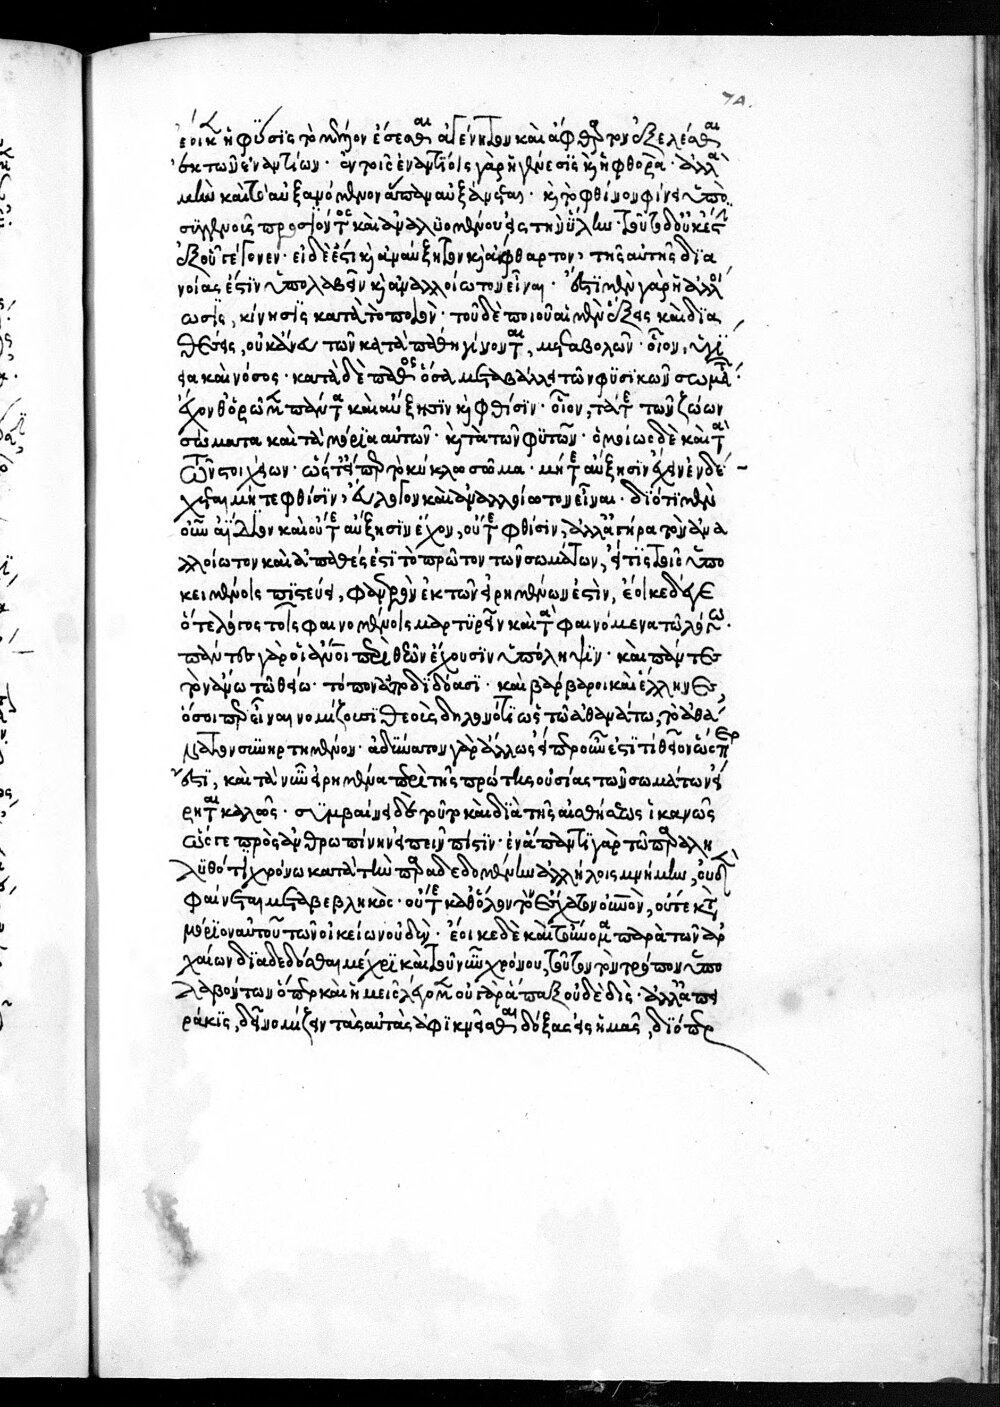 ἔοικεν ἡ φύσις τὸ μέλλον ἔσεσθαι ἀγένητον καὶ ἄφθαρτον ἐξελέσθαι
ἐκ τῶν ἐναντίων · ἐν τοῖς ἐναντίοις γὰρ ἡ γένεσις κὶ ἡ φθορὰ · ἀλλὰ
μὴν καὶ τὸ αὐξανόμενον ἅπαν αὐξάνεται · κὶ τὸ φθίνον φίνει ὑπὸ
συγγενοῦς προσϊόντος καὶ ἀναλυομένου εἰς τὴν ὕλην · τούτω δ' οὐκ ἔστιν
ἐξ οὗ γέγονεν · εἰ δὲ ἐστι κὶ ἀναύξητον κὶ ἄφθαρτον, τῆς αὐτῆς δϊα
νοίας ἐστὶν ὑπολαβεῖν κὶ ἀναλλοίωτον εἶναι · ἔστι μὲν γὰρ ἡ ἀλλοί
ωσϊς, κίνησϊς κατὰ τὸ ποιὸν · τοῦ δὲ ποιοῦ αἱ μὲν ἕξεις καὶ δϊα
θέσεις, οὐκ ἄνευ τῶν κατὰ πάθη γίνονται, μεταβολῶν · οἷον, ὑγί
εια καὶ νόσος · κατὰ δὲ πάθος ὅσα μεταβάλλει τῶν φϋσϊκῶν σωμάτων
ἔχονθ' ὁρῶμεν πάντα καὶ αὔξησϊν κὶ φθίσϊν · οἷον, τά τε τῶν ζώων
σώματα καὶ τὰ μόρϊα αὐτῶν · κὶ τὰ τῶν φϋτῶν · ὁμοίως δὲ καὶ τὰ
τῶν στοιχείων · ὥστ' εἴπερ τὸ κύκλω σῶμα · μήτε αὔξησϊν ἔχειν ἐνδέ
χεται μήτε φθίσϊν, εὔλογον καὶ ἀναλλοίωτον εἶναι · διότι μὲν
οὖν ἀΐδϊον καὶ οὔτε αὔξησϊν ἔχον, οὔτε φθίσϊν, ἀλλὰ γήρατον ἀνα
λλοίωτον καὶ ἀπαθές ἐστι τὸ πρῶτον τῶν σωμάτων, εἴ τις τοῖς ὑπο
κειμένοις πϊστεύει, φανερὸν ἐκ τῶν εἰρημένων ἐστὶν, ἔοικε δὲ
ὅ τε λόγος τοῖς φαινομένοις μαρτϋρεῖν καὶ τὰ φαινόμενα τῶ λόγω ·
πάντες γὰρ οἱ ἄνθρωποι περὶ θεῶν ἔχουσϊν ὑπόληψϊν · καὶ πάντες
τὸν ἄνω τῶ θείω · τόπον ἀποδϊδόασϊ · καὶ βάρβαροι καὶ ἕλληνες,
ὅσοι περ εἶναι νομίζουσϊ θεοὺς, δηλονότι ὡς τῶ ἀθανάτω, τὸ ἀθά
νατον συνηρτημένον · ἀδύνατον γὰρ ἄλλως, εἴπερ οὖν ἐστϊ τὶ θεῖον ὥσπερ
ἔστϊ, καὶ τὰ νῦν εἰρημένα περὶ τῆς πρώτης οὐσίας τῶν σωμάτων εἴ
ρηται καλῶς · συμβαίνει δὲ τοῦτο καὶ διὰ τῆς αἰσθήσεως ἱκανῶς
ὥς γε πρὸς ἀνθρωπίνην εἰπεῖν πίστϊν · ἐν ἅπαντι γὰρ τῶ παρελη
λϋθότϊ χρόνω κατὰ τὴν παραδεδομένην ἀλλήλοις μνήμην, οὐδὲν
φαίνεται μεταβεβληκὸς · οὔτε καθ' ὅλον τὸν ἔσχατον οὐρανὸν, οὔτε κατὰ
μόρϊον αὐτοῦ τῶν οἰκείων οὐδὲν · ἔοικε δὲ καὶ τοὔνομα παρὰ τῶν ἀρ
χαίων δϊαδεδόσθαι μέχρϊ καὶ τοῦ νῦν χρόνου, τοῦτον τὸν τρόπον ὑπο
λαβόντων ὅπερ καὶ ἡμεῖς λέγομεν οὐ γὰρ ἅπαξ οὐδὲ δὶς · ἀλλ' ἀπει
ράκϊς, δεῖ νομίζειν τὰς αὐτὰς ἀφϊκνεῖσθαι δόξας εἰς ἡμᾶς, δϊόπερ